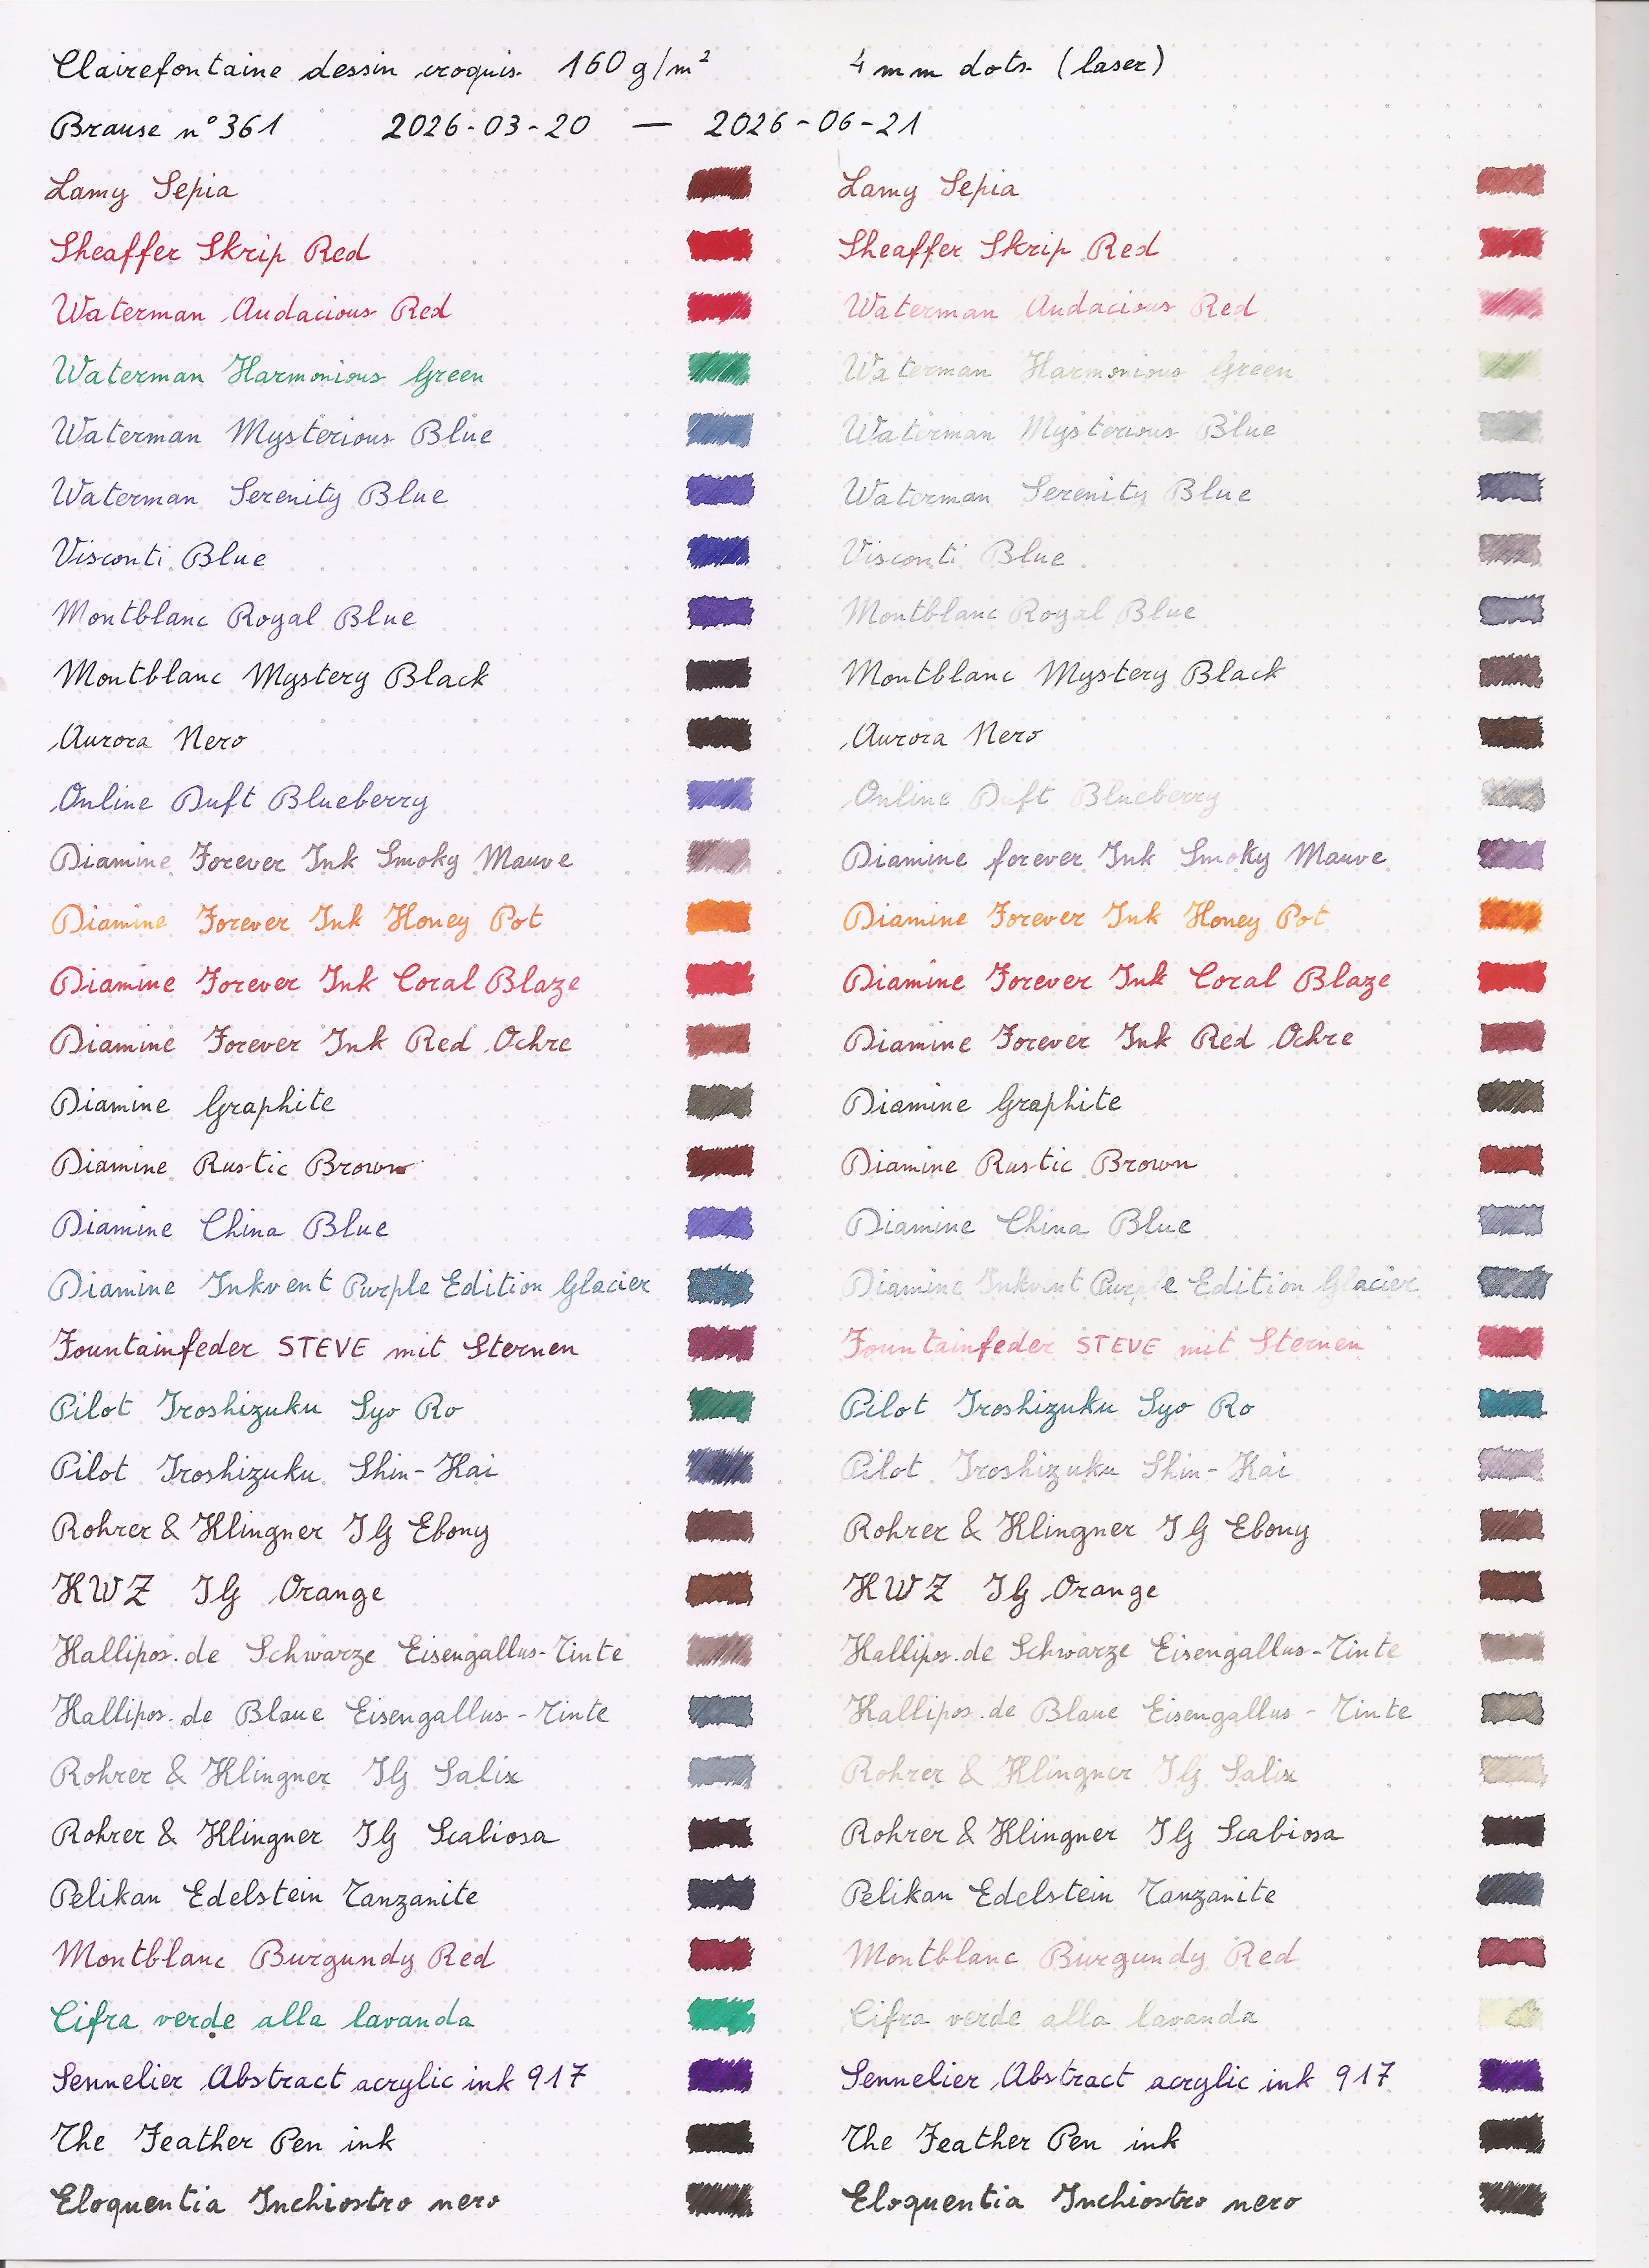 Clairefontaine dessin croquis 160 g/m² 4 mm dots (laser)
Brause n°361 2026-03-20 — 2026-06-21
Lamy Sepia Lamy Sepia
Sheaffer Skrip Red Sheaffer Skrip Red
Waterman Audacious Red Waterman Audacious Red
Waterman Harmonious Green Waterman Harmonious Green
Waterman Mysterious Blue Waterman Mysterious Blue
Waterman Serenity Blue Waterman Serenity Blue
Visconti Blue Visconti Blue
Montblanc Royal Blue Montblanc Royal Blue
Montblanc Mystery Black Montblanc Mystery Black
Aurora Nero Aurora Nero
Online Duft Blueberry Online Duft Blueberry
Diamine Forever Ink Smoky Mauve Diamine forever Ink Smoky Mauve
Diamine Forever Ink Honey Pot Diamine Forever Ink Honey Pot
Diamine Forever Ink Coral Blaze Diamine Forever Ink Coral Blaze
Diamine Forever Ink Red Ochre Diamine Forever Ink Red Ochre
Diamine Graphite Diamine Graphite
Diamine Rustic Brown Diamine Rustic Brown
Diamine China Blue Diamine China Blue
Diamine Inkvent Purple Edition Glacier Diamine Inkvent Purple Edition Glacier
Fountainfeder STEVE mit Sternen Fountainfeder STEVE mit Sternen
Pilot Iroshizuku Syo Ro Pilot Iroshizuku Syo Ro
Pilot Iroshizuku Shin-Kai Pilot Iroshizuku Shin-Kai
Rohrer & Klingner IG Ebony Rohrer & Klingner IG Ebony
KWZ IG Orange KWZ IG Orange
Kallipos.de Schwarze Eisengallus-Tinte Kallipos.de Schwarze Eisengallus-Tinte
Kallipos.de Blaue Eisengallus-Tinte Kallipos.de Blaue Eisengallus-Tinte
Rohrer & Klingner IG Salix Rohrer & Klingner IG Salix
Rohrer & Klingner IG Scabiosa Rohrer & Klingner IG Scabiosa
Pelikan Edelstein Tanzanite Pelikan Edelstein Tanzanite
Montblanc Burgundy Red Montblanc Burgundy Red
Cifra verde alla lavanda Cifra verde alla lavanda
Sennelier Abstract acrylic ink 917 Sennelier Abstract acrylic ink 917
The Feather Pen ink The Feather Pen ink
Eloquentia Inchiostro nero Eloquentia Inchiostro nero